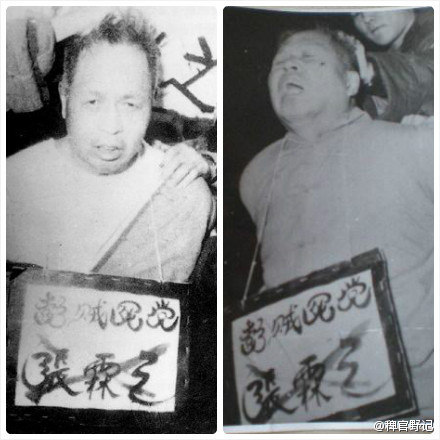 彭贼死党
張霖之
彭贼死党
張霖之
@稗官野记